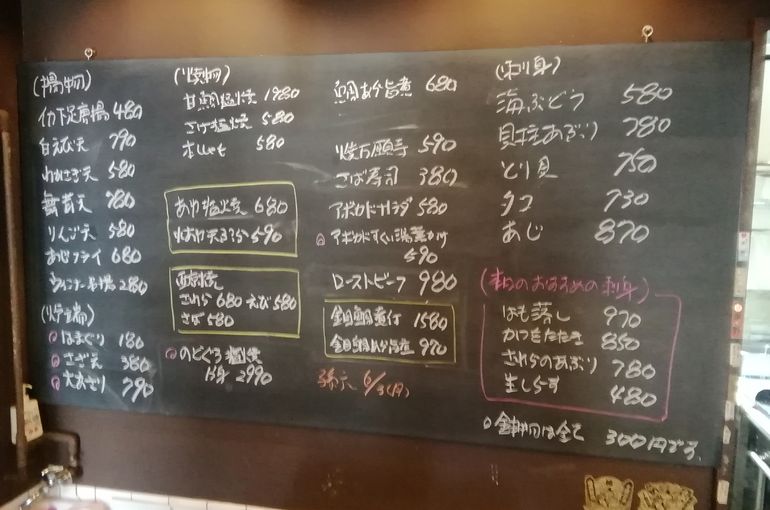 (揚物)
イカ下足唐揚 480
白えび天 790
わかさぎ天 580
舞茸天 780
りんご天 580
あじフライ 680
ウィンナー串揚 280
(炉端)
はまぐり 180
さざえ 380
大あさり 790
(焼物)
甘鯛塩焼 1980
さけ塩焼 580
ししゃも 580
あゆ塩焼 680
稚あゆ天ぷら 590
西京焼
さわら 680 えび 580
さば 580
のどぐろ塩焼
半身 2990
鯛あら旨煮 680
焼万願寺 590
さば寿司 380
アボカドサラダ 580
アボカドすくい湯葉かけ
590
ローストビーフ 980
金目鯛煮付 1580
金目鯛かぶと煮 970
6/3(月)
(刺身)
海ぶどう 580
貝柱あぶり 780
とり貝 750
タコ 730
あじ 870
(本日のおすすめの刺身)
はも落し 970
かつをたたき 850
さわらのあぶり 780
生しらす 480
全て 300円です